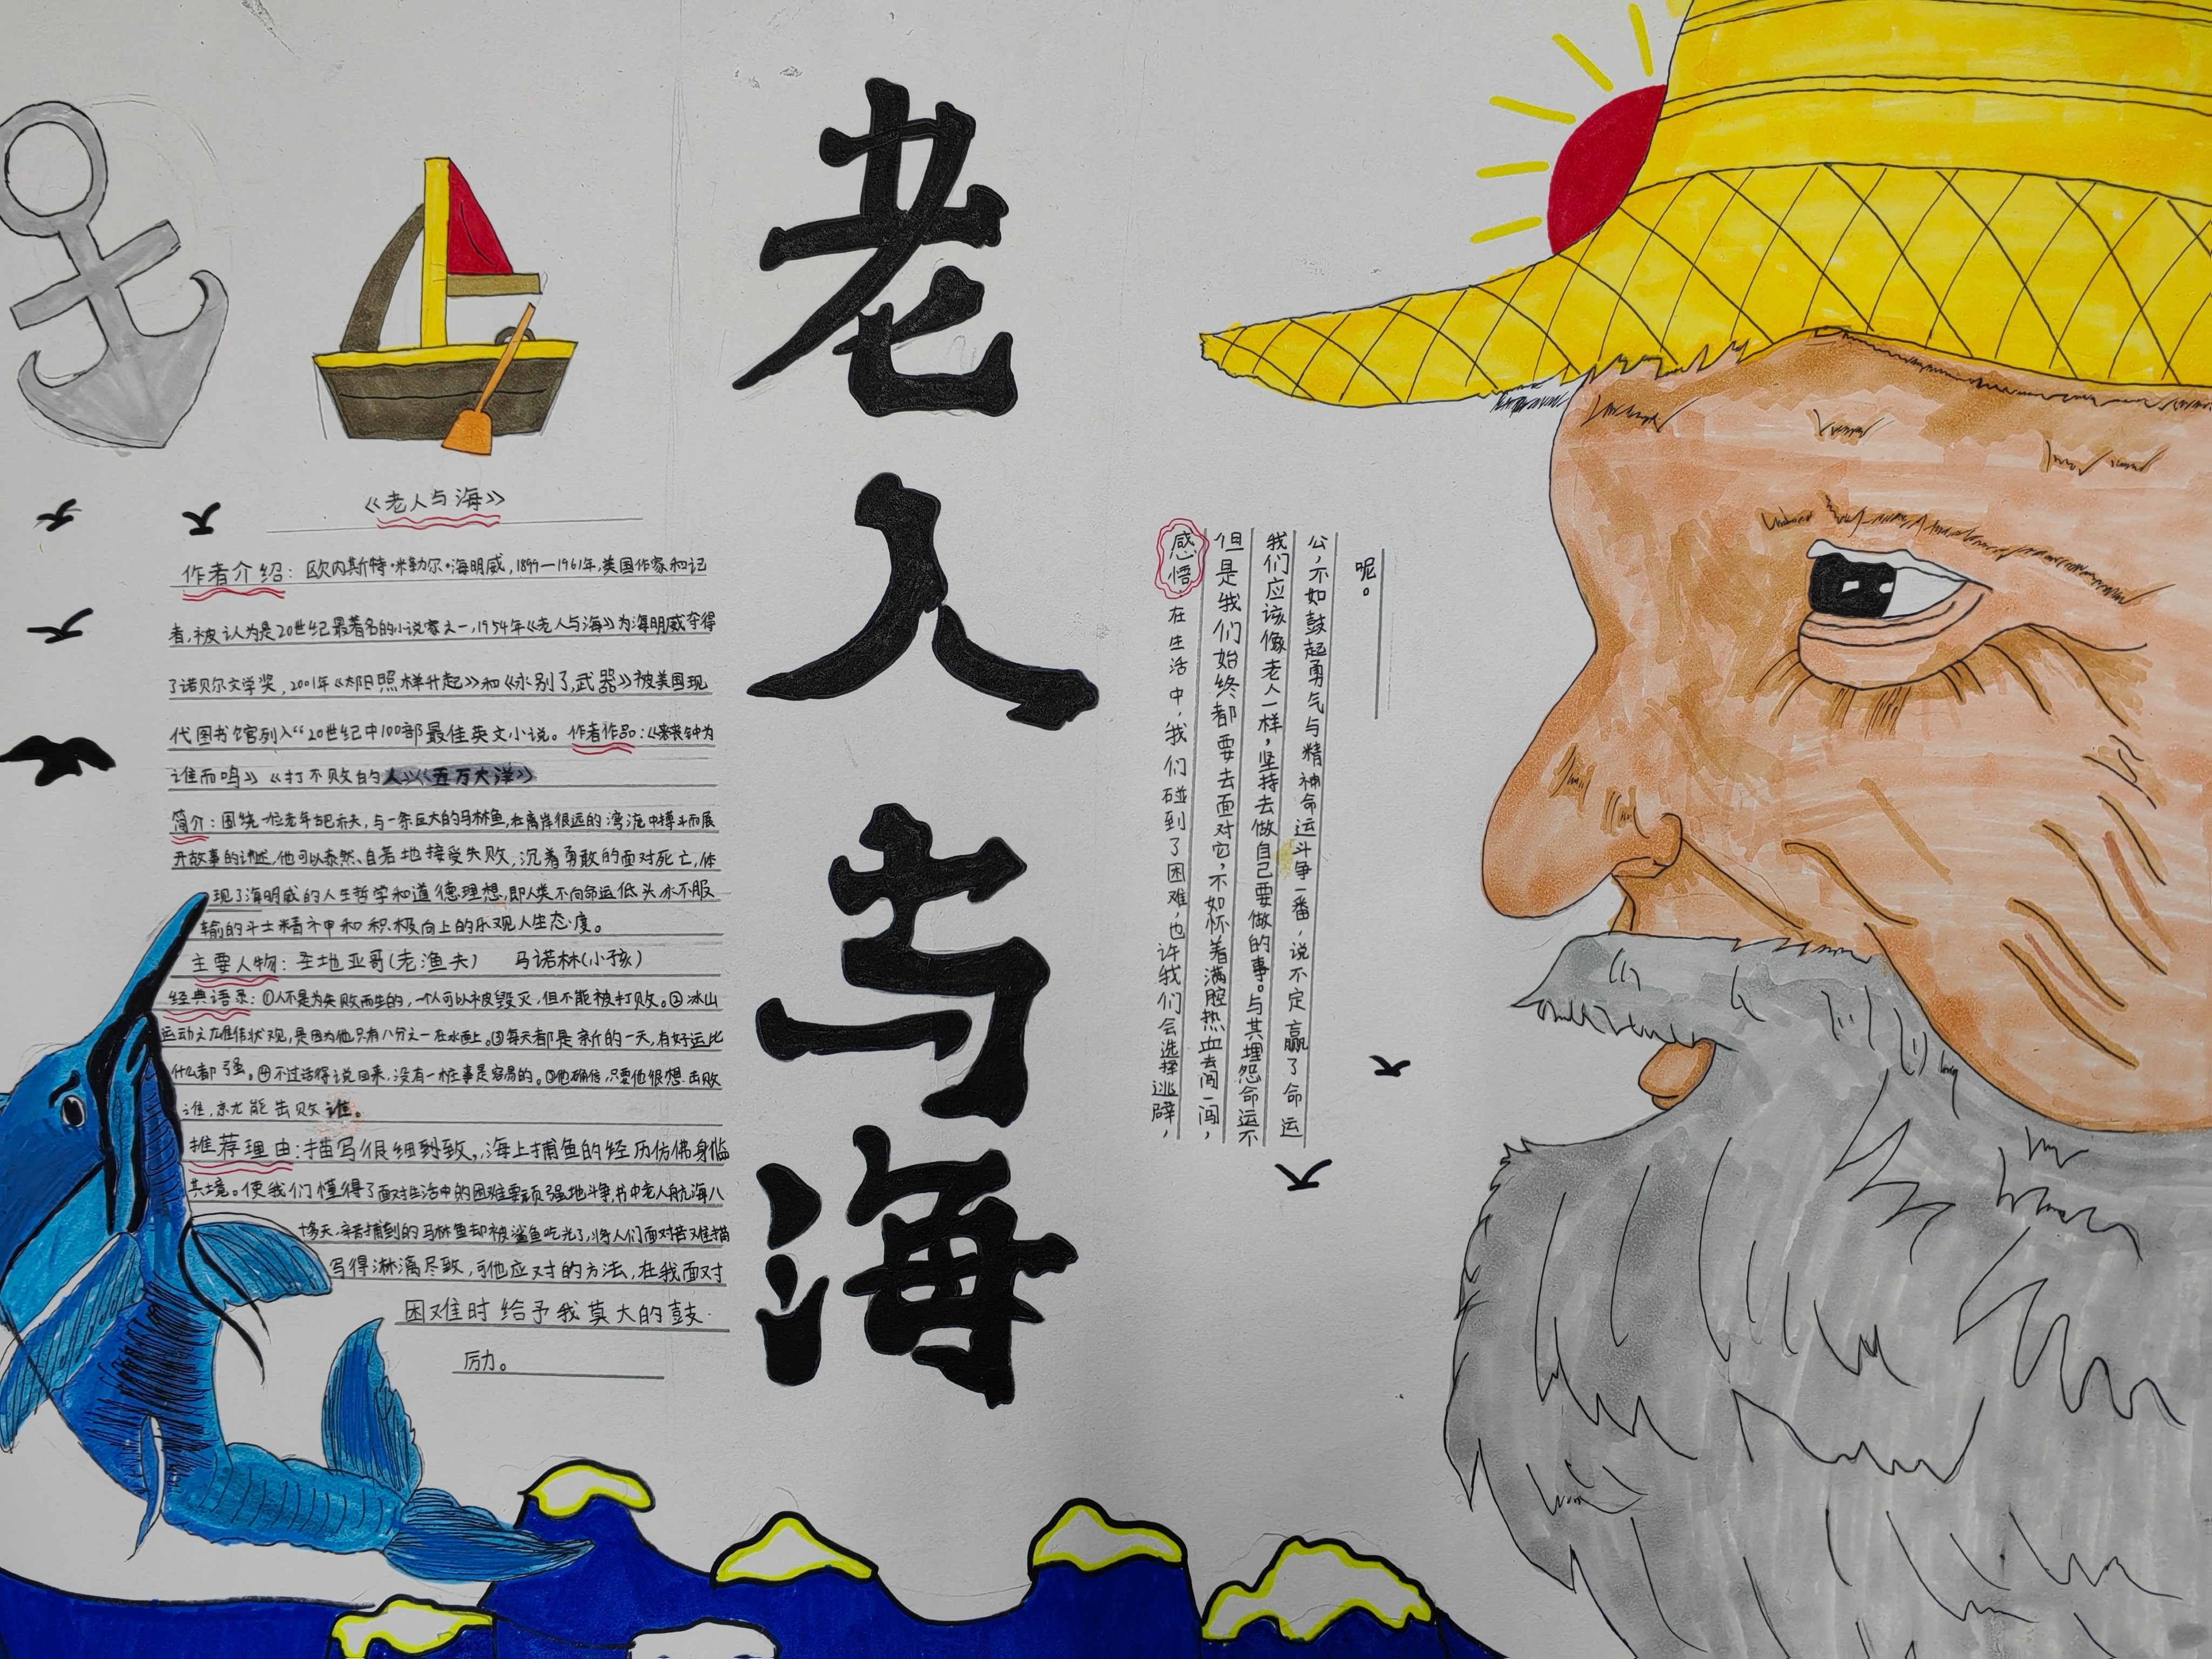 老人与海
《老人与海》
作者介绍：欧内斯特·米勒尔·海明威，1899—1961年，美国作家和记
者，被认为是20世纪最著名的小说家之一，1954年《老人与海》为海明威夺得
了诺贝尔文学奖，2001年《太阳照样升起》和《永别了，武器》被美国现
代图书馆列入“20世纪中100部最佳英文小说。作者作品：《丧钟为
谁而鸣》《打不败的人》《五万大洋》
简介：围绕一位老年古巴渔夫，与一条巨大的马林鱼，在离岸很远的湾流中搏斗而展
开故事的讲述，他可以泰然自若地接受失败，沉着勇敢的面对死亡，体
现了海明威的人生哲学和道德理想，即人类不向命运低头，永不服
输的斗士精神和积极向上的乐观人生态度。
主要人物：圣地亚哥（老渔夫） 马诺林（小孩）
经典语录：①人不是为失败而生的，一个人可以被毁灭，但不能被打败。②冰山
运动之雄伟状观，是因为他只有八分之一在水面上。③每天都是新的一天，有好运比
什么都强。④不过话得说回来，没有一桩事是容易的。⑤他确信，只要他很想击败
谁，就能击败谁。
推荐理由：描写很细到致，海上捕鱼的经历仿佛身临
其境。使我们懂得了面对生活中的困难要顽强地斗争，书中老人航海八
十多天，辛苦捕到的马林鱼却被鲨鱼吃光了，将人们面对苦难描
写得淋漓尽致，可他应对的方法，在我面对
困难时给予我莫大的鼓
厉力。
感悟 在生活中，我们碰到了困难，也许我们会选择逃避，
但是我们始终都要去面对它，不如怀着满腔热血去闯一闯，
我们应该像老人一样，坚持去做自己要做的事。与其埋怨命运不
公，不如鼓起勇气与精神命运斗争一番，说不定赢了命运
呢。